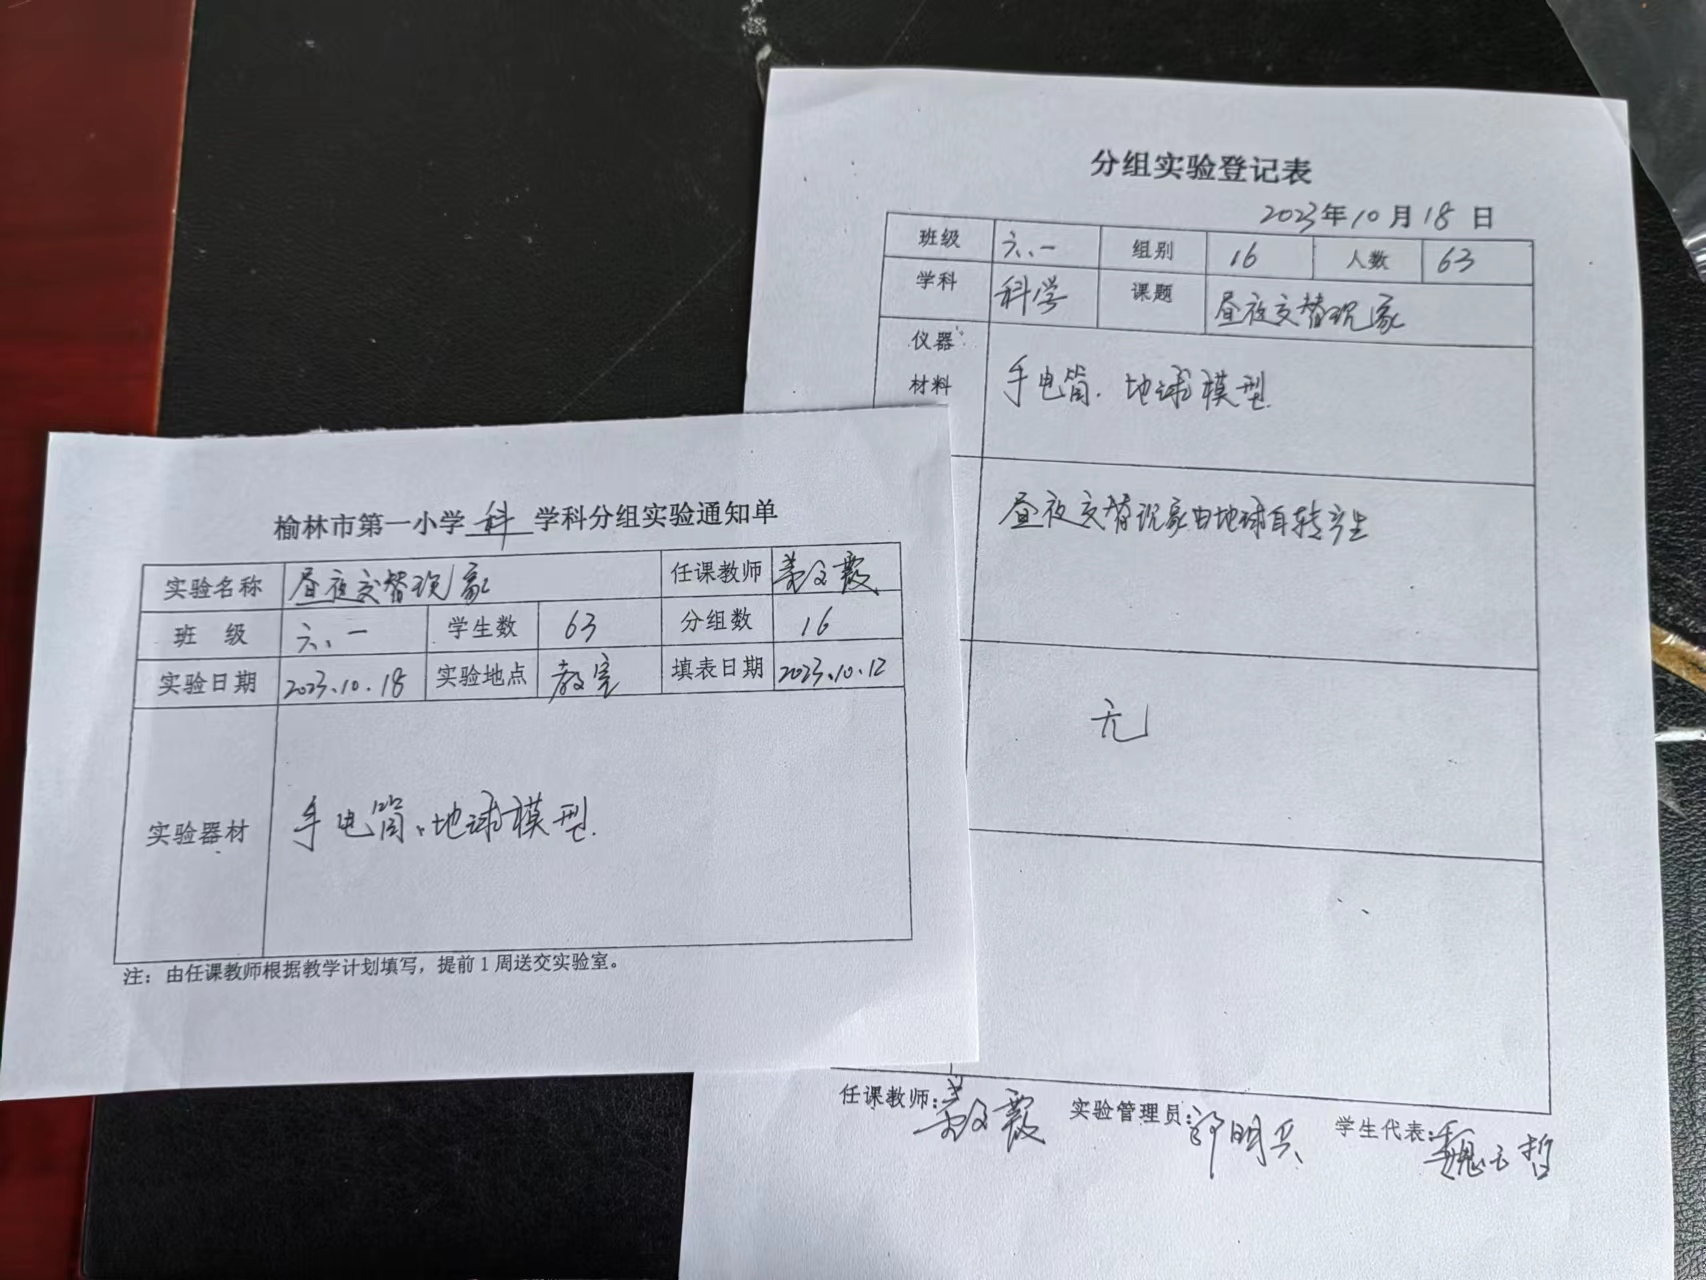 榆林市第一小学 科 学科分组实验通知单
实验名称 昼夜交替现象 任课教师
班 级 六、一 学生数 63 分组数 16
实验日期 2023.10.18 实验地点 教室 填表日期 2023.10.12
实验器材 手电筒、地球模型.
注：由任课教师根据教学计划填写，提前1周送交实验室。
分组实验登记表
2023年10月18日
班级 六、一 组别 16 人数 63
学科 科学 课题 昼夜交替现象
仪器
材料 手电筒. 地球模型.
昼夜交替现象由地球自转产生
无
任课教师: 实验管理员: 学生代表: